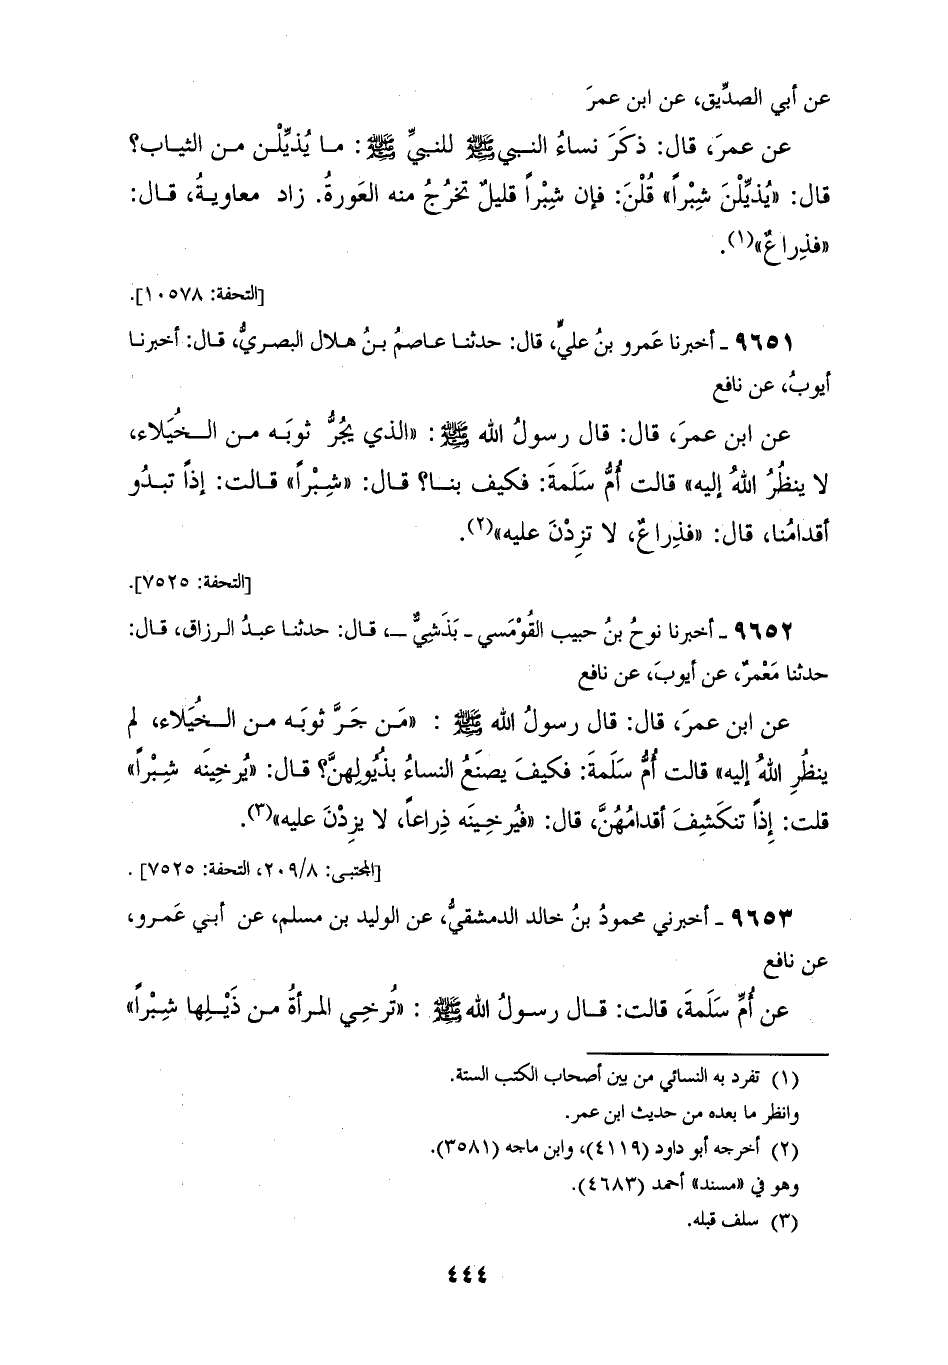 عن أبي الصدِّيق، عن ابن عمرَ
عن عمرَ، قال: ذكَرَ نساءُ النبي ﷺ للنبيِّ ﷺ: ما يُذيِّلْن من الثياب؟
قال: «يُذيِّلْنَ شِبْراً» قُلْنَ: فإن شِبْراً قليلٌ تخرُجُ منه العَورةُ. زاد معاويةُ، قال:
«فذِراعٌ»(١).
[التحفة: ١٠٥٧٨].
٩٦٥١ ـ أخبرنا عَمرو بنُ عليٍّ، قال: حدثنا عاصمُ بنُ هلال البصريُّ، قال: أخبرنا
أيوبُ، عن نافع
عن ابن عمرَ، قال: قال رسولُ الله ﷺ: «الذي يجُرُّ ثوبَه من الخُيَلاء،
لا ينظُرُ اللهُ إليه» قالت أُمُّ سَلَمةَ: فكيف بنا؟ قال: «شِبْراً» قالت: إذاً تبدُو
أقدامُنا، قال: «فذِراعٌ، لا تزِدْنَ عليه»(٢).
[التحفة: ٧٥٢٥].
٩٦٥٢ ـ أخبرنا نوحُ بنُ حبيب القُوْمَسي ـ بَذَشيٌّ ـ، قال: حدثنا عبدُ الرزاق، قال:
حدثنا مَعْمرٌ، عن أيوبَ، عن نافع
عن ابن عمرَ، قال: قال رسولُ الله ﷺ: «مَن جَرَّ ثوبَه من الخُيَلاء، لم
ينظُرِ اللهُ إليه» قالت أُمُّ سَلَمةَ: فكيفَ يصنَعُ النساءُ بذُيُولِهنَّ؟ قال: «يُرخِينَه شِبْراً»
قلت: إذاً تنكَشِفَ أقدامُهُنَّ، قال: «فيُرخِينَه ذِراعاً، لا يزِدْنَ عليه»(٣).
[المجتبى: ٢٠٩/٨، التحفة: ٧٥٢٥].
٩٦٥٣ ـ أخبرني محمودُ بنُ خالد الدمشقيُّ، عن الوليد بن مسلم، عن أبي عَمرو،
عن نافع
عن أُمِّ سَلَمةَ، قالت: قال رسولُ الله ﷺ: «تُرخِي المرأةُ من ذَيْلِها شِبْراً»
(١) تفرد به النسائي من بين أصحاب الكتب الستة.
وانظر ما بعده من حديث ابن عمر.
(٢) أخرجه أبو داود (٤١١٩)، وابن ماجه (٣٥٨١).
وهو في «مسند» أحمد (٤٦٨٣).
(٣) سلف قبله.
٤٤٤